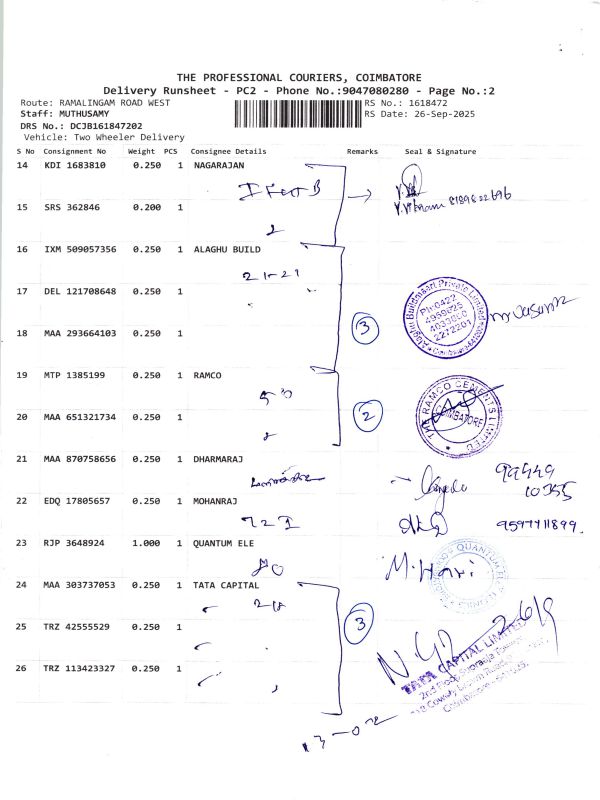 THE PROFESSIONAL COURIERS, COIMBATORE
Delivery Runsheet - PC2 - Phone No.:9047080280 - Page No.:2
Route: RAMALINGAM ROAD WEST
RS No.: 1618472
Staff: MUTHUSAMY
RS Date: 26-Sep-2025
DRS No.: DCJB161847202
Vehicle: Two Wheeler Delivery
S No Consignment No Weight PCS Consignee Details Remarks Seal & Signature
14 KDI 1683810 0.250 1 NAGARAJAN
15 SRS 362846 0.200 1
16 IXM 509057356 0.250 1 ALAGHU BUILD
21-21
17 DEL 121708648 0.250 1
18 MAA 293664103 0.250 1 3
Alaghu Buildmaart Private Limited
Ph:0422
19 MTP 1385199 0.250 1 RAMCO
20 MAA 651321734 0.250 1 2
THE RAMCO CEMENTS LIMITED
COIMBATORE
21 MAA 870758656 0.250 1 DHARMARAJ
99449
10355
22 EDQ 17805657 0.250 1 MOHANRAJ
9597711899.
23 RJP 3648924 1.000 1 QUANTUM ELE
M. Hari
QUANTUM
24 MAA 303737053 0.250 1 TATA CAPITAL
25 TRZ 42555529 0.250 1 3
26 TRZ 113423327 0.250 1
TATA CAPITAL LIMITED
13-02